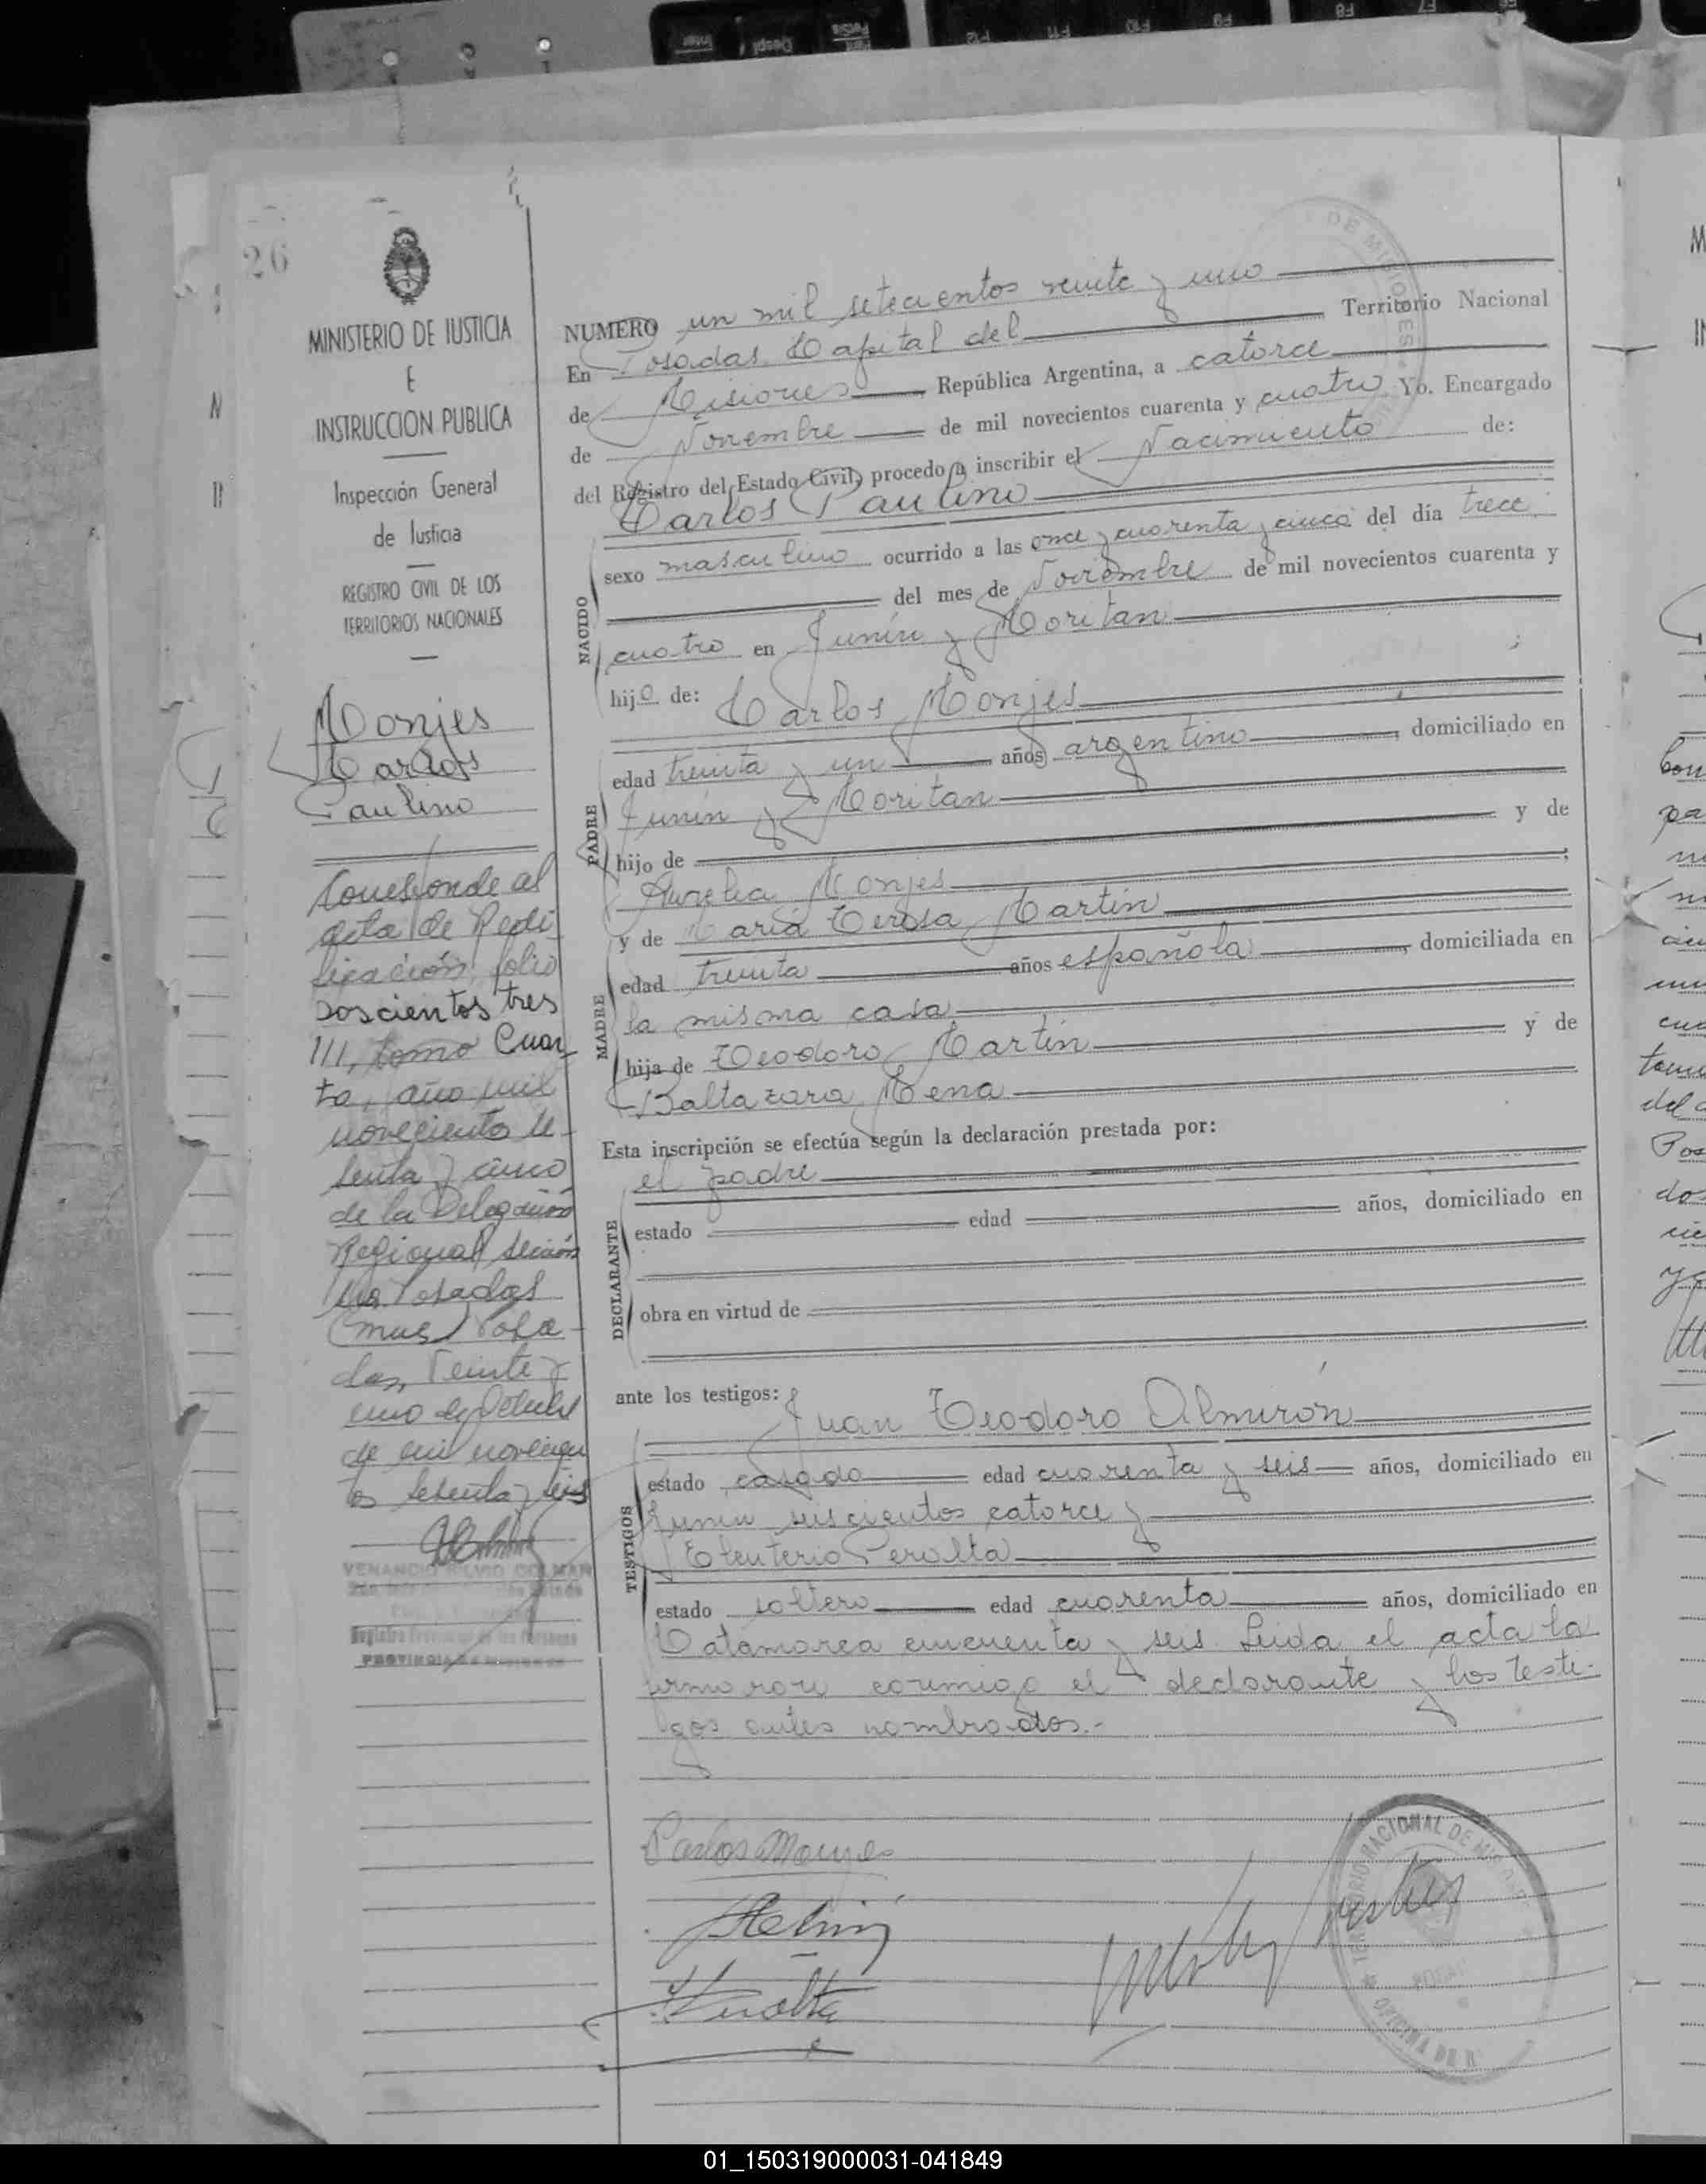 26
MINISTERIO DE JUSTICIA
E
INSTRUCCION PUBLICA
Inspección General
de Justicia
REGISTRO CIVIL DE LOS
TERRITORIOS NACIONALES
Monjes
Carlos
Paulino
Corresponde al
acta de Recti
ficación, folio
Doscientos tres
///, tomo Cuar
to, año mil
novecientos se
senta y cinco
de la Delegación
Regional Sección
Posadas
Posa
das, Veinte y
uno de Octubre
de mil novecien
tos sesenta y seis
VENANCIO SILVIO COLMAN
PROVINCIA DE MISIONES
NUMERO un mil setecientos veinte y uno
En Posadas Capital del Territorio Nacional
de Misiones República Argentina, a catorce
de Noviembre de mil novecientos cuarenta y cuatro Yo. Encargado
del Registro del Estado Civil, procedo a inscribir el Nacimiento de:
Carlos Paulino
NACIDO
sexo masculino ocurrido a las once y cuarenta y cinco del día trece
del mes de Noviembre de mil novecientos cuarenta y
cuatro en Junín y Moritan
hijo de: Carlos Monjes
PADRE
edad treinta y un años argentino, domiciliado en
Junín y Moritan
hijo de y de
Aurelia Monjes;
y de María Teresa Martín
MADRE
edad treinta años española, domiciliada en
la misma casa
hija de Teodoro Martín y de
Baltazara Mena
Esta inscripción se efectúa según la declaración prestada por:
el padre
DECLARANTE
estado edad años, domiciliado en
obra en virtud de
ante los testigos: Juan Teodoro Almirón
TESTIGOS
estado casado edad cuarenta y seis años, domiciliado en
Junín seiscientos catorce y
Eleuterio Peralta
estado soltero edad cuarenta años, domiciliado en
Catamarca cincuenta y seis. Leída el acta la
firmaron conmigo el declarante y los testi-
gos antes nombrados.-
Carlos Monjes
Peralta
TERRITORIO NACIONAL DE MISIONES
01_150319000031-041849